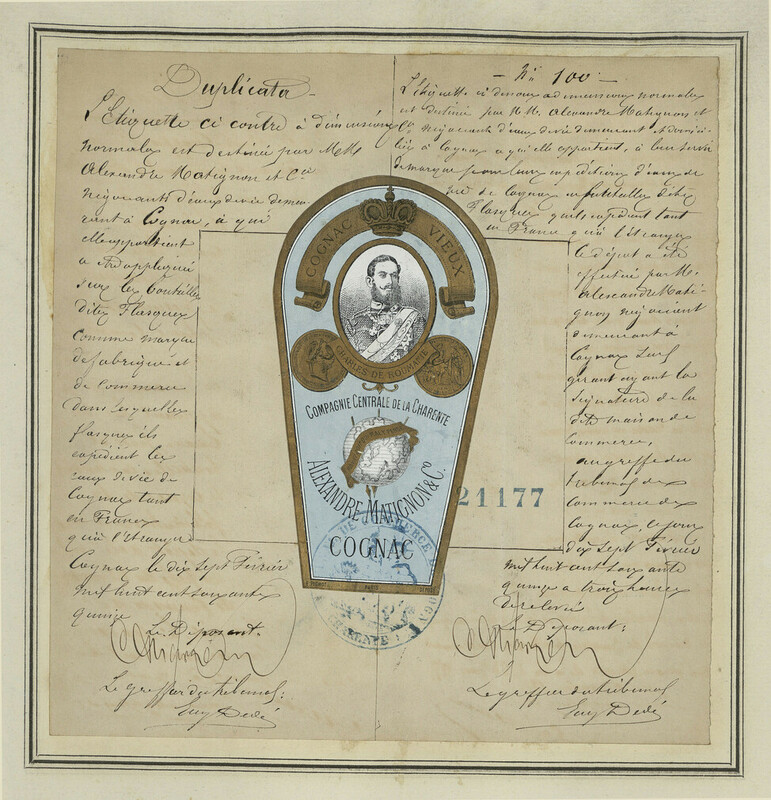 Duplicata
L'Etiquette ci contre à dimensions
normales est destinée par M.M.
Alexandre Matignon et Cie
négociants d'eaux de vie demeu-
rant à Cognac, à qui
elle appartient
a être appliquée
sur les bouteilles
dites Flasques
comme marque
de fabrique et
de commerce
dans lesquelles
flasques ils
expédient les
eaux de vie de
Cognac tant
en France
qu'à l'étranger
Cognac le dix sept Février
mil huit cent soixante
quinze
Le Déposant.
Le greffier du tribunal:
Eug Dedé
- No 100 -
L'étiquette ci dessous a dimensions normales
est destinée par M.M. Alexandre Matignon et
Cie négociants d'eaux de vie demeurant et domici-
liés à Cognac a qui elle appartient, à leur servir
de marque pour leurs expéditions d'eaux de
vie de Cognac en bouteilles dites
Flasques qu'ils expédient tant
en France qu'à l'étranger
le dépôt a été
effectué par M.
Alexandre Mati-
gnon négociant
demeurant à
Cognac seul
gérant ayant la
signature de la
dite maison de
commerce,
au greffe du
tribunal de
commerce de
Cognac, ce jour
dix sept Février
mil huit cent soixante
quinze a trois heures
de relevée
Le Déposant:
Le greffier du tribunal
Eug Dedé
COGNAC VIEUX
CHARLES DE ROUMANIE
COMPAGNIE CENTRALE DE LA CHARENTE
ALEXANDRE MATIGNON & Co
COGNAC
PARIS
21177
DE COMMERCE
CHARENTE